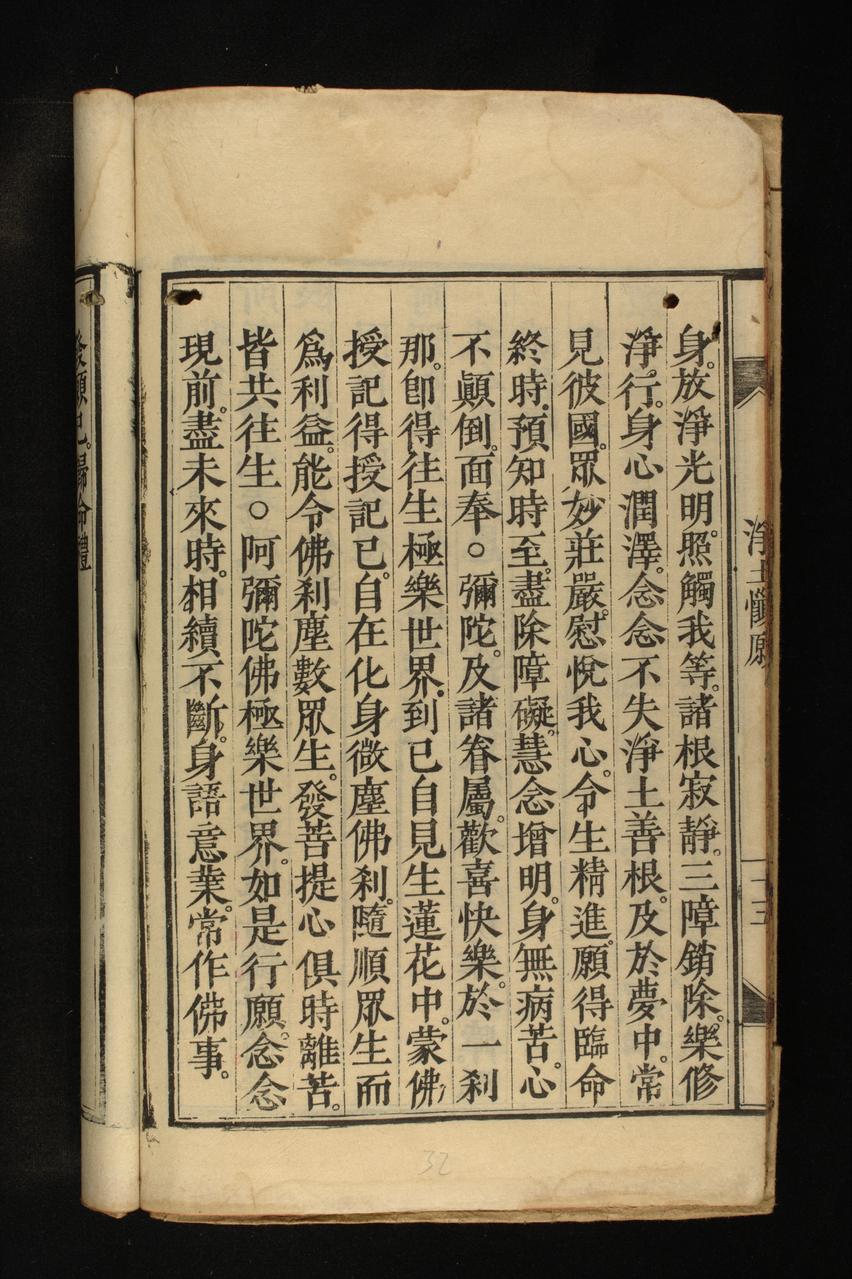 淨土懺願
十三
身。放淨光明。照觸我等。諸根寂靜。三障銷除。樂修
淨行。身心潤澤。念念不失淨土善根。及於夢中。常
見彼國。眾妙莊嚴。慰悅我心。令生精進。願得臨命
終時。預知時至。盡除障礙。慧念增明。身無病苦。心
不顛倒。面奉○彌陀。及諸眷屬。歡喜快樂。於一刹
那。卽得往生極樂世界。到已自見生蓮花中。蒙佛
授記得授記已。自在化身微塵佛刹。隨順眾生而
爲利益。能令佛刹塵數眾生。發菩提心俱時離苦。
皆共往生○阿彌陀佛極樂世界。如是行願。念念
現前。盡未來時。相續不斷。身語意業。常作佛事。
發願已。歸命禮
32